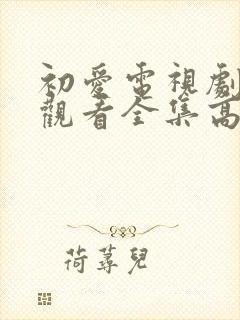 初愛電視劇
觀看全集高
荷蕁兒